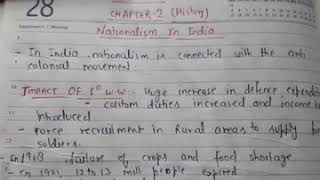 28
CHAPTER-2 (History)
Nationalism In India
- In India, nationalism is connected with the anti
colonial movement.
IMPACT OF Ist W.W. - Huge increase in defence expendi
- custom duties increased and income
introduced
- Force recruitment in Rural areas to supply
soldiers.
In 1918, failure of crops and food shortage
- In 1921, 12 to 13 mill people expired